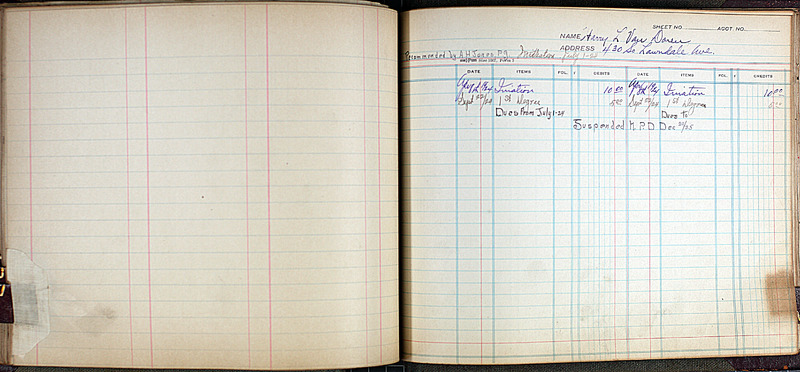 SHEET NO. ACCT. NO.
NAME Harry L Van Doren
ADDRESS 430 So. Lawndale Ave.
Recommended by A.H. Jones, P.G. July 1-24
DATE ITEMS FOL. DEBITS DATE ITEMS FOL. CREDITS
Initiation 10 00 Initiation 10 00
Sept 1st Degree 5 00 Sept 1st Degree 5 00
Dues From July 1-24 Dues To
Suspended N.P.D Dec 31/25